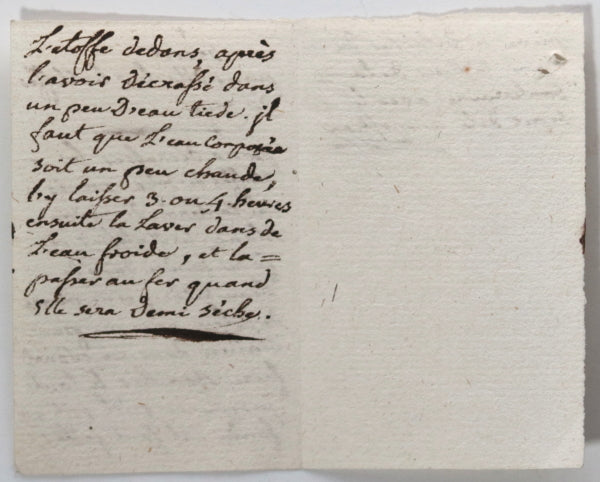 L'etoffe dedans, après
l'avoir décrassé dans
un peu D'eau tiede. jl
faut que L'eau Composée
soit un peu chaude,
l'y laisser 3 ou 4 heures
ensuite la Laver dans de
L'eau froide, et la=
passer au fer quand
Elle sera Demi séche.